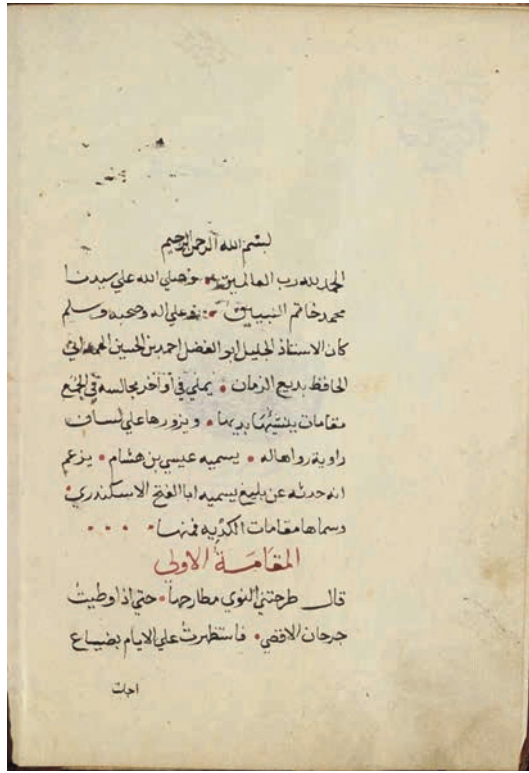 بسم الله الرحمن الرحيم
الحمد لله رب العالمين • وصلى الله علي سيدنا
محمد خاتم النبيين • وعلى اله وصحبه وسلم
كان الاستاذ الجليل ابو الفضل احمد بن الحسين الهمداني
الحافظ بديع الزمان • يملي في أواخر مجالسه في الجمع
مقامات ينشيها بديها • ويزورها على لسان
راوية رواها له • يسميه عيسي بن هشام • يزعم
انه حدثه عن بليغ يسميه ابا الفتح الاسكندري •
وسماها مقامات الكديه فمنها • • • •
المقامة الاولى
قال طرحتني النوي مطارحها • حتي اذا وطيت
جرجان الاقصي • فاستظهرت علي الايام بضياع
اجلت